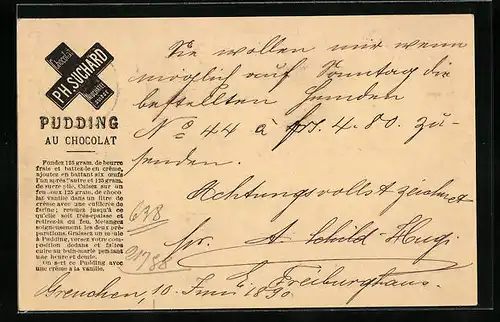 Chocolat
PH. SUCHARD
NEUCHATEL
SUISSE
PUDDING
AU CHOCOLAT
Fondez 125 gram. de beurre
frais et battez-le en crème,
ajoutez en battant six œufs
l'un après l'autre et 125 gram.
de sucre pilé. Cuisez sur un
feu doux 125 gram. de choco-
lat vanillé dans un litre de
crème avec une cuillerée de
farine; remuez jusqu'à ce
qu'elle soit très-épaisse et
retirez-la du feu. Mélangez
soigneusement les deux pré-
parations. Graissez un moule
à Pudding, versez votre com-
position dedans et faites
cuire au bain-marie pendant
une heure et demie.
On sert ce Pudding avec
une crème à la vanille.
Sie wollen mir wenn
möglich auf Sonntag die
bestellten Hemden
No 44 à frs. 4.80. zu-
senden.
Achtungsvollst zeichnet
Fr. A. Schild-Hugi
Freiburghaus.
Grenchen, 10. Juni 1890.
638
21788